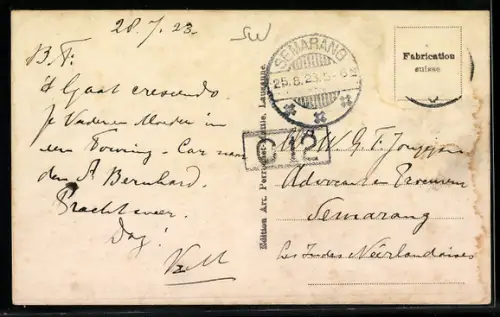 28.7.23.
B.F.
't Gaat crescendo
Je Vader en Moeder in
een Touring-Car naar
den St Bernhard.
Prachtweer.
Dag!
SEMARANG
25.8.23.5-6
Fabrication
suisse
Edition Art. Perrochet-Matile, Lausanne.
W. G. F.
Advocaat en Procureur
Semarang
Les Indes Néerlandaises